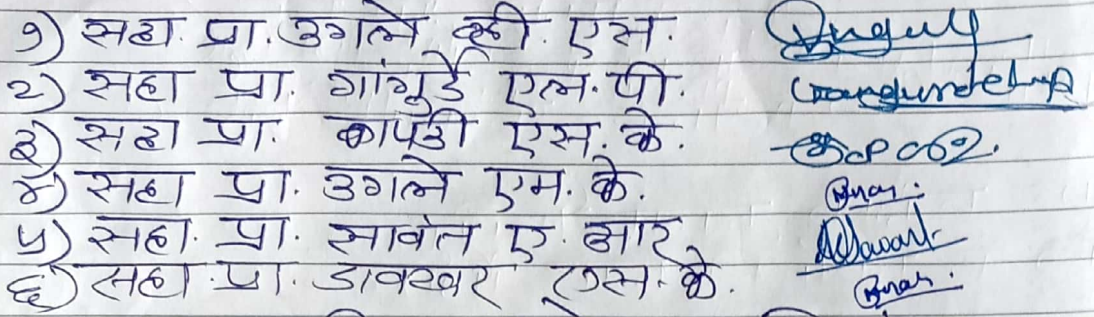 १) सहा. प्रा. उगले व्ही. एस.
२) सहा प्रा. गांगुर्डे एल. पी. Gangurdelp
३) सहा प्रा. कापडी एस. के.
४) सहा प्रा. उगले एम. के.
५) सहा. प्रा. सावंत ए. आर. ASawant
६) सहा. प्रा. डावखर एस. के.